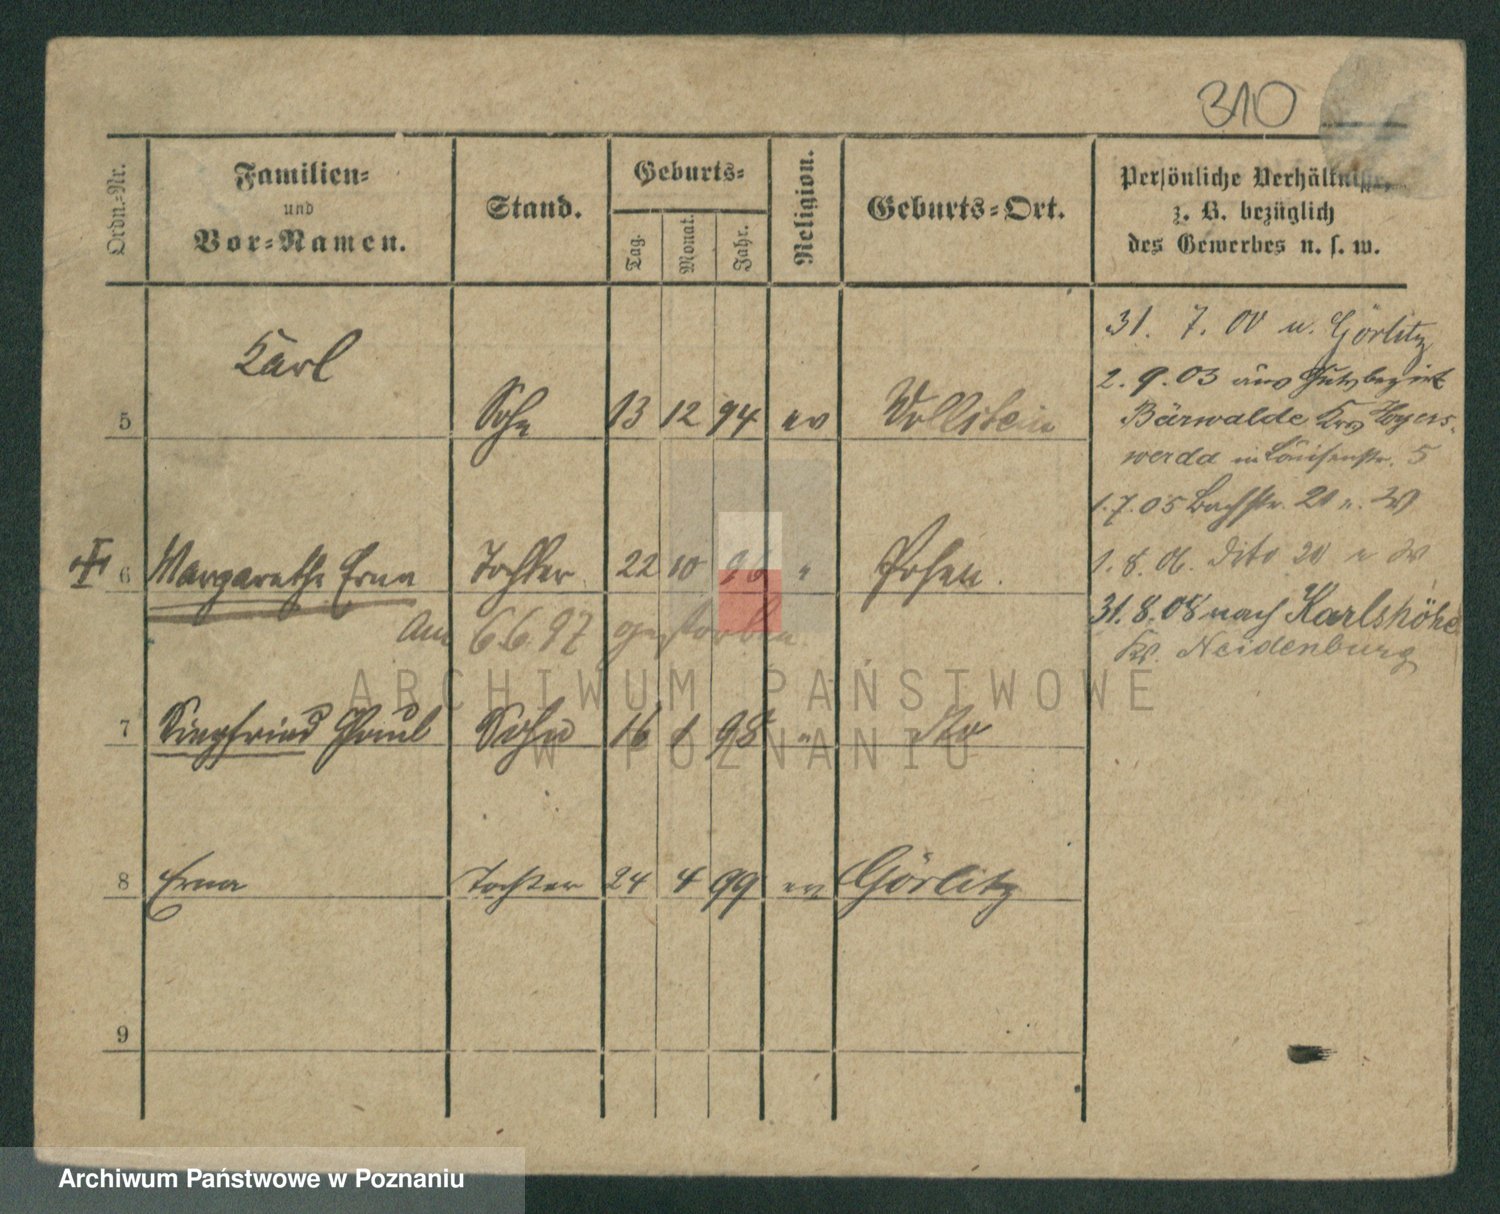 310
Ordn.-Nr.
Familien-
und
Vor-Namen.
Stand.
Geburts-
Tag.
Monat.
Jahr.
Religion.
Geburts-Ort.
Persönliche Verhältnisse,
z. B. bezüglich
des Gewerbes u. s. w.
Karl
5 Sohn 13 12 94 ev Wollstein
6 Margarethe Erna Tochter 22 10 96 " Posen.
Am 6.6.97 gestorben.
7 Siegfried Paul Sohn 16 1 98 " dto
8 Erna Tochter 24 4 99 ev Görlitz
9
31. 7. 00 n. Görlitz
2. 9. 03 aus Gutsbezirk
Bärwalde Krs Hoyers-
werda in Louisenstr. 5
1. 7. 05 Bachstr. 20 n. W
1. 8. 06. dito 20 n W
31. 8. 08 nach Karlshöhe
Kr. Neidenburg
ARCHIWUM PAŃSTWOWE
W POZNANIU
Archiwum Państwowe w Poznaniu